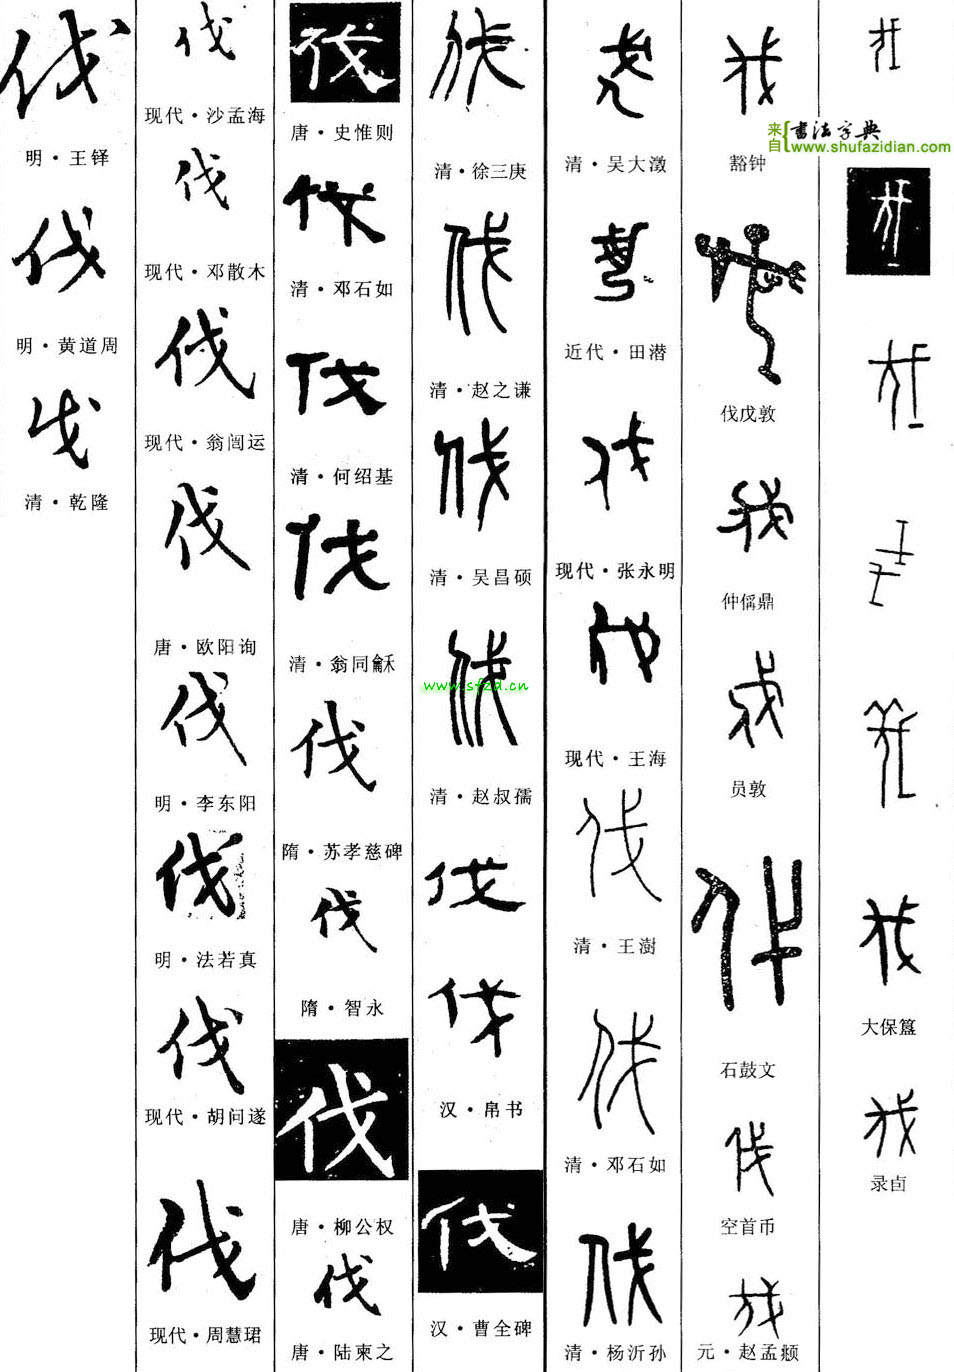 伐
伐
伐
伐
伐
伐
大保簋
伐
录卣
伐
豁钟
来自
书法字典
www.shufazidian.com
伐
伐戊敦
伐
仲偁鼎
伐
员敦
伐
石鼓文
伐
空首币
伐
元·赵孟頫
伐
清·吴大澂
伐
近代·田潜
伐
现代·张永明
伐
现代·王海
伐
清·王澍
伐
清·邓石如
伐
清·杨沂孙
伐
清·徐三庚
伐
清·赵之谦
伐
清·吴昌硕
伐
www.sfzd.cn
清·赵叔孺
伐
伐
汉·帛书
伐
汉·曹全碑
伐
唐·史惟则
伐
清·邓石如
伐
清·何绍基
伐
清·翁同龢
伐
隋·苏孝慈碑
伐
隋·智永
伐
唐·柳公权
伐
唐·陆柬之
伐
现代·沙孟海
伐
现代·邓散木
伐
现代·翁闿运
伐
唐·欧阳询
伐
明·李东阳
伐
明·法若真
伐
现代·胡问遂
伐
现代·周慧珺
伐
明·王铎
伐
明·黄道周
伐
清·乾隆